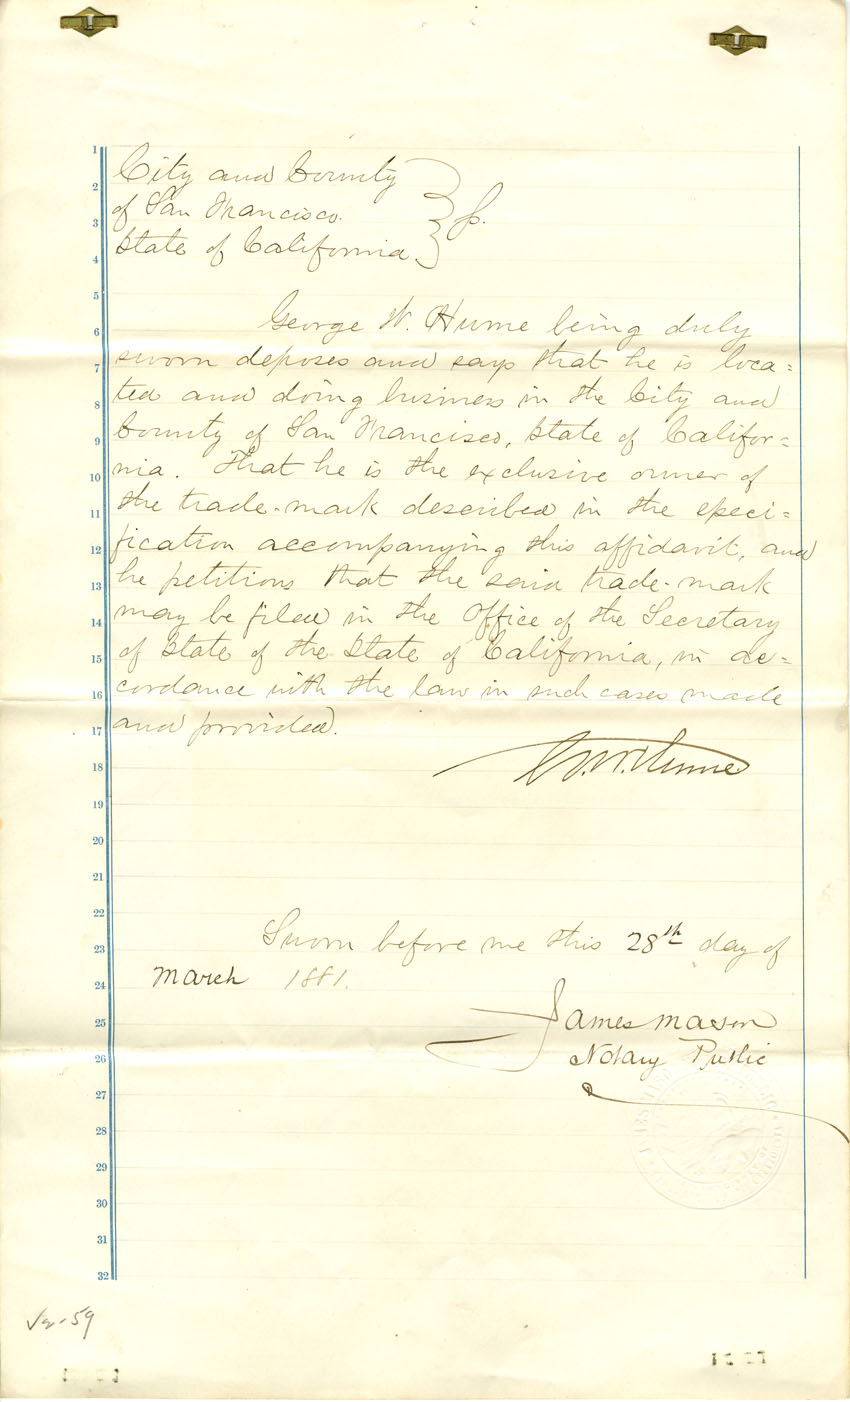 1
City and County
2
of San Francisco. } ss.
3
State of California.
4
5
6
George W. Hume being duly
7
sworn deposes and says that he is loca=
8
ted and doing business in the City and
9
County of San Francisco, State of Califor=
10
nia. That he is the exclusive owner of
11
the trade-mark described in the speci=
12
fication accompanying this affidavit, and
13
he petitions that the said trade-mark
14
may be filed in the Office of the Secretary
15
of State of the State of California, in ac=
16
cordance with the law in such cases made
17
and provided.
18
G. W. Hume
19
20
21
22
23
Sworn before me this 28th day of
24
March 1881.
25
James Mason
26
Notary Public
27
28
29
30
31
32